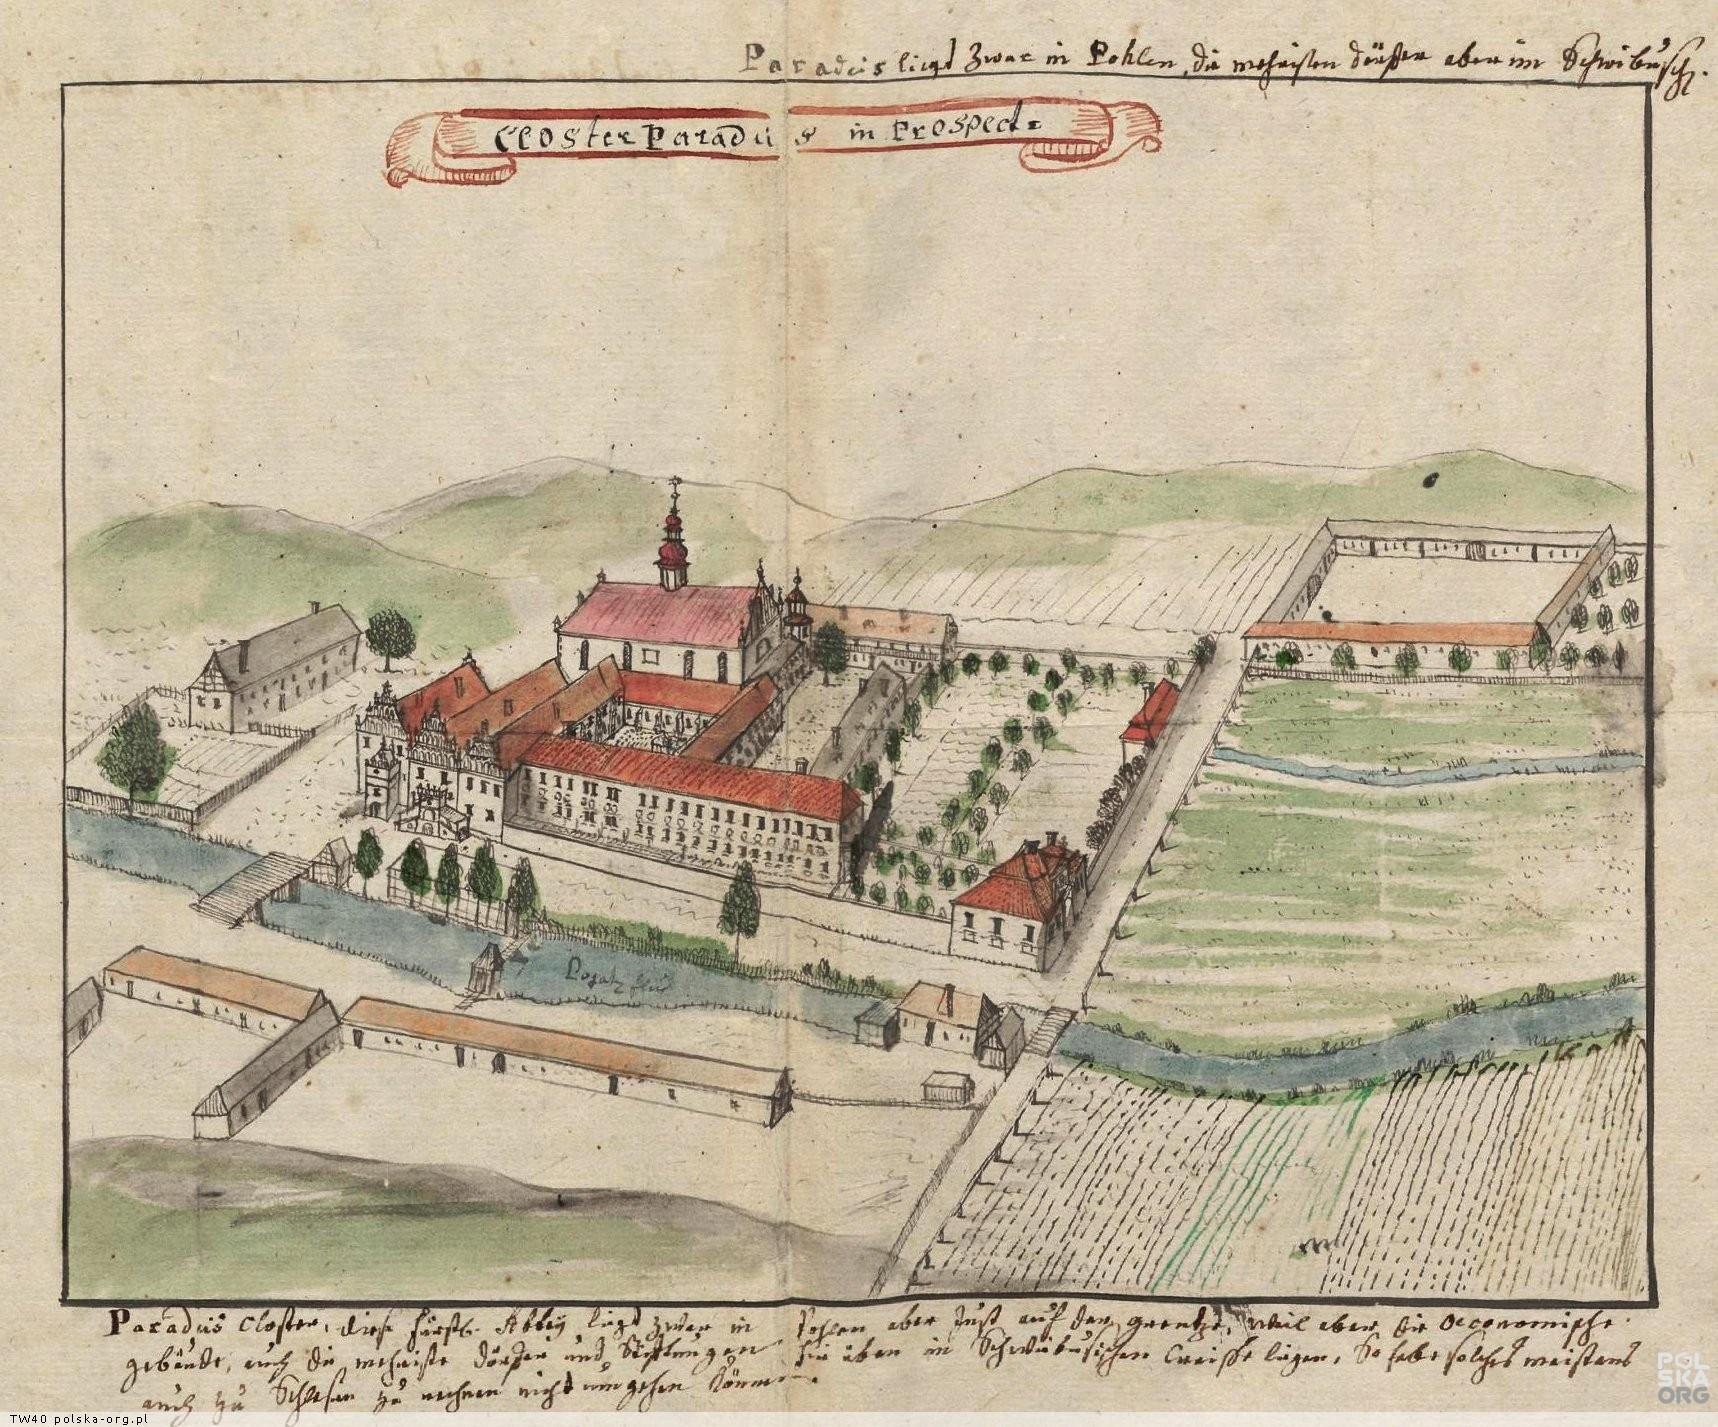 Paradeis liegt zwar in Pohlen, die mehristen dörffer aber im Schwibusch.
Closter Paradeis in Prospect:
fluß
Paradeis Closter, diese fürstl. Abbtey liegt zwar in Pohlen aber Just auf der grentze, weil aber die Oeconomische
gebäude, auch die mehriste dörffer und hie üben in Schwibusischen Creisse liegen, So habe solches meistens
auch zu Schlesien zu rechnen nicht umgehen können.
POL
SKA
ORG
TW40 polska-org.pl